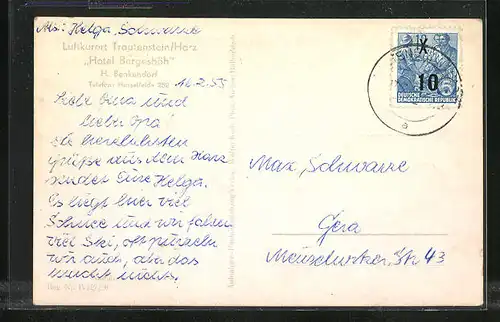 Abs: Helga Schwarre
Luftkurort Trautenstein/Harz
„Hotel Bergeshöh"
H. Benkendorf
Telefon: Hasselfelde 252
16.2.55
Liebe Oma und
lieber Opa!
die herzlichsten
Grüße aus dem Harz
sendet Eure Helga.
Es liegt hier viel
Schnee und wir fahren
viel Ski, oft purzeln
wir auch, aber das
macht nichts.
X
10
DEUTSCHE
DEMOKRATISCHE REPUBLIK
Max Schwarre
Gera
Str. 43